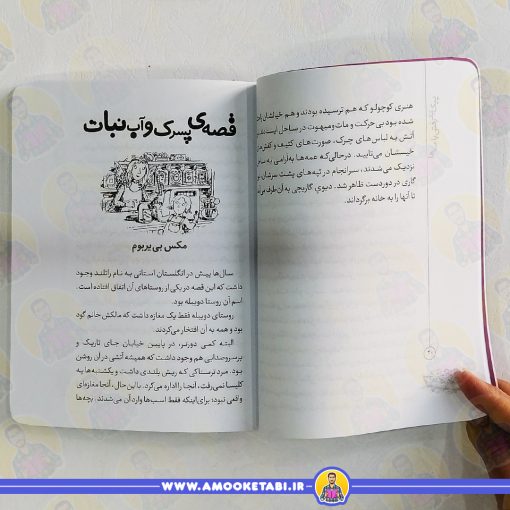 هنری کوچولو که هم ترسیده بودند و هم خیالشان راحت
شده بود بی‌حرکت و مات‌ومبهوت در ساحل ایستادند.
آتش به لباس‌های چرک، صورت‌های کثیف و
خیسشان می‌تابید. درحالی‌که عمه‌ها به‌آرامی به
نزدیک می‌شدند، سرانجام در تپه‌های پشت سرشان
گاری در دوردست ظاهر شد. دیوی گاریچی به آن‌طرف
تا آنها را به خانه برگرداند.
قصه‌ی پسرک و آب‌نبات
مکس بی‌یربوم
سال‌ها پیش در انگلستان استانی به نام راتلند وجود
داشت که این قصه در یکی از روستاهای آن اتفاق افتاده است.
اسم آن روستا دوبیله بود.
روستای دوبیله فقط یک مغازه داشت که مالکش خانم گود
بود و همه به آن افتخار می‌کردند.
البته کمی دورتر، در پایین خیابان جای تاریک و
پرسروصدایی هم وجود داشت که همیشه آتشی در آن روشن
بود. مرد ترسناکی که ریش بلندی داشت و یکشنبه‌ها به
کلیسا نمی‌رفت، آنجا را اداره می‌کرد. بااین‌حال، آنجا مغازه‌ای
واقعی نبود؛ برای اینکه فقط اسب‌ها وارد آن می‌شدند. بچه‌ها
WWW.AMOOKETABI.IR